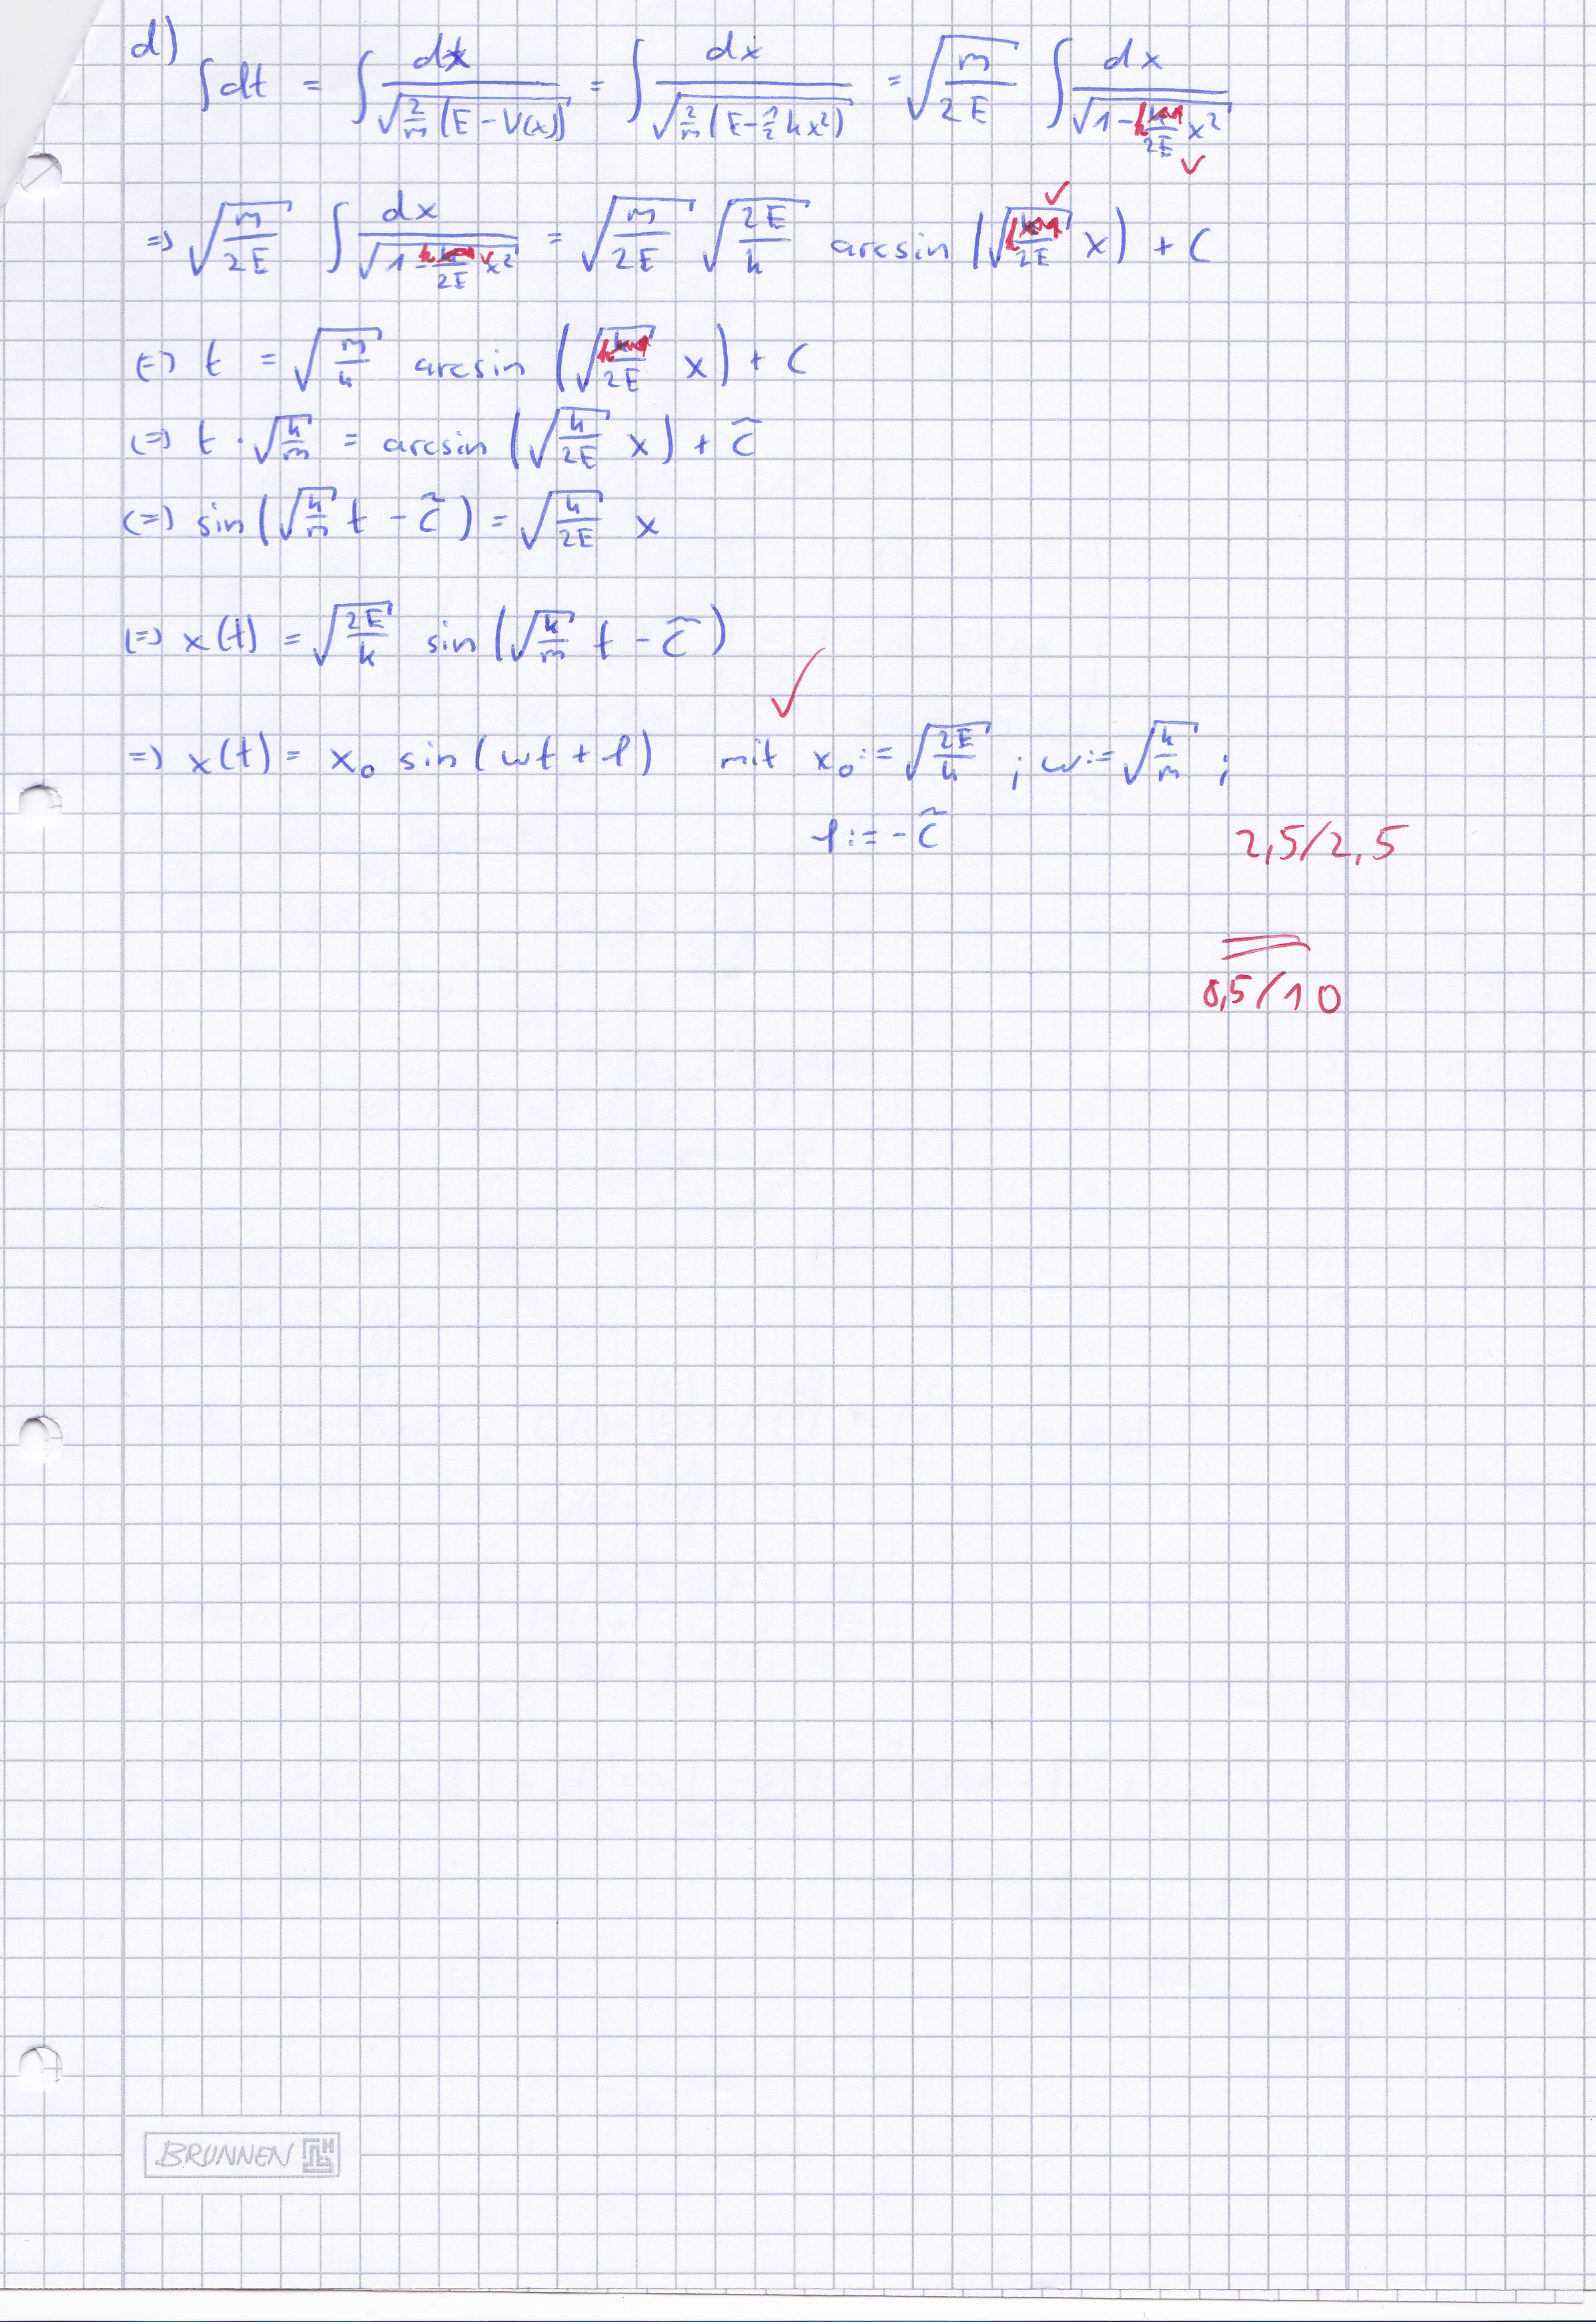 d)
∫ dt = ∫ dx / √(2/m (E - V(x))) = ∫ dx / √(2/m (E - 1/2 k x²)) = √(m/2E) ∫ dx / √(1 - k/2E x²) ✓
=> √(m/2E) ∫ dx / √(1 - k/2E x²) = √(m/2E) √(2E/k) arcsin (√(k/2E) x) + C ✓
<=> t = √(m/k) arcsin (√(k/2E) x) + C
<=> t · √(k/m) = arcsin (√(k/2E) x) + C̃
<=> sin (√(k/m) t - C̃) = √(k/2E) x
<=> x(t) = √(2E/k) sin (√(k/m) t - C̃)
✓
=> x(t) = x₀ sin (ωt + φ) mit x₀ := √(2E/k) ; ω := √(k/m) ;
φ := - C̃
2,5/2,5
8,5/10
BRUNNEN